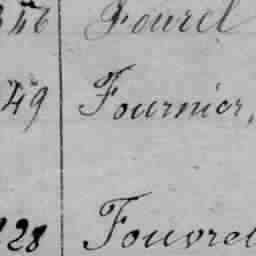 346 Fourel
49 Fournier,
128 Fouvret